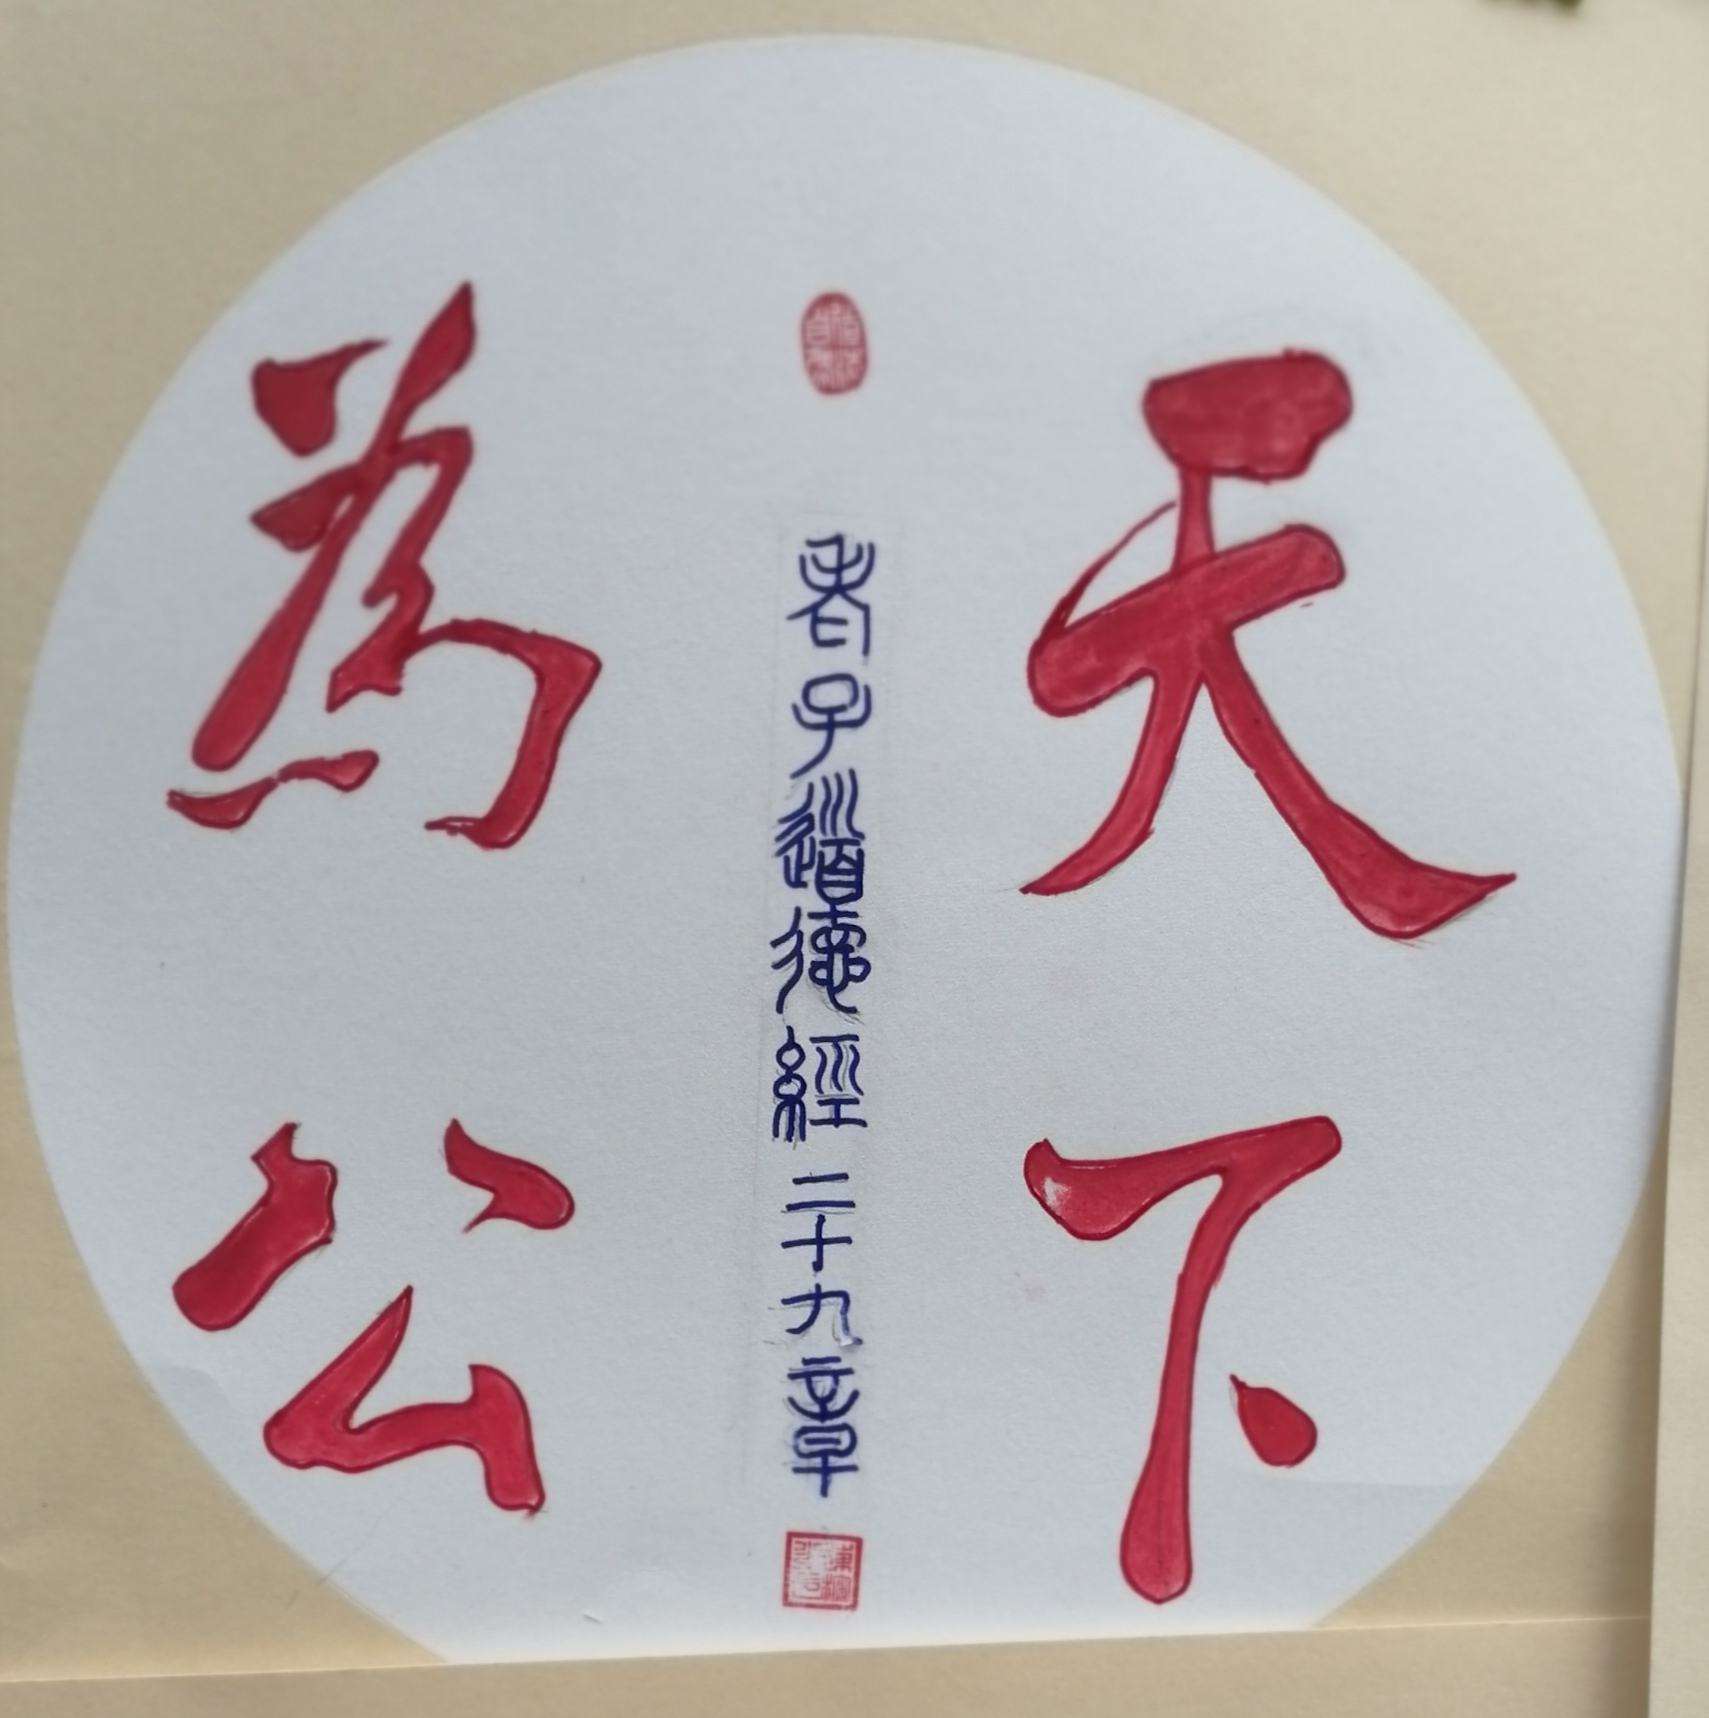 天下
老子道德經二十九章
為公